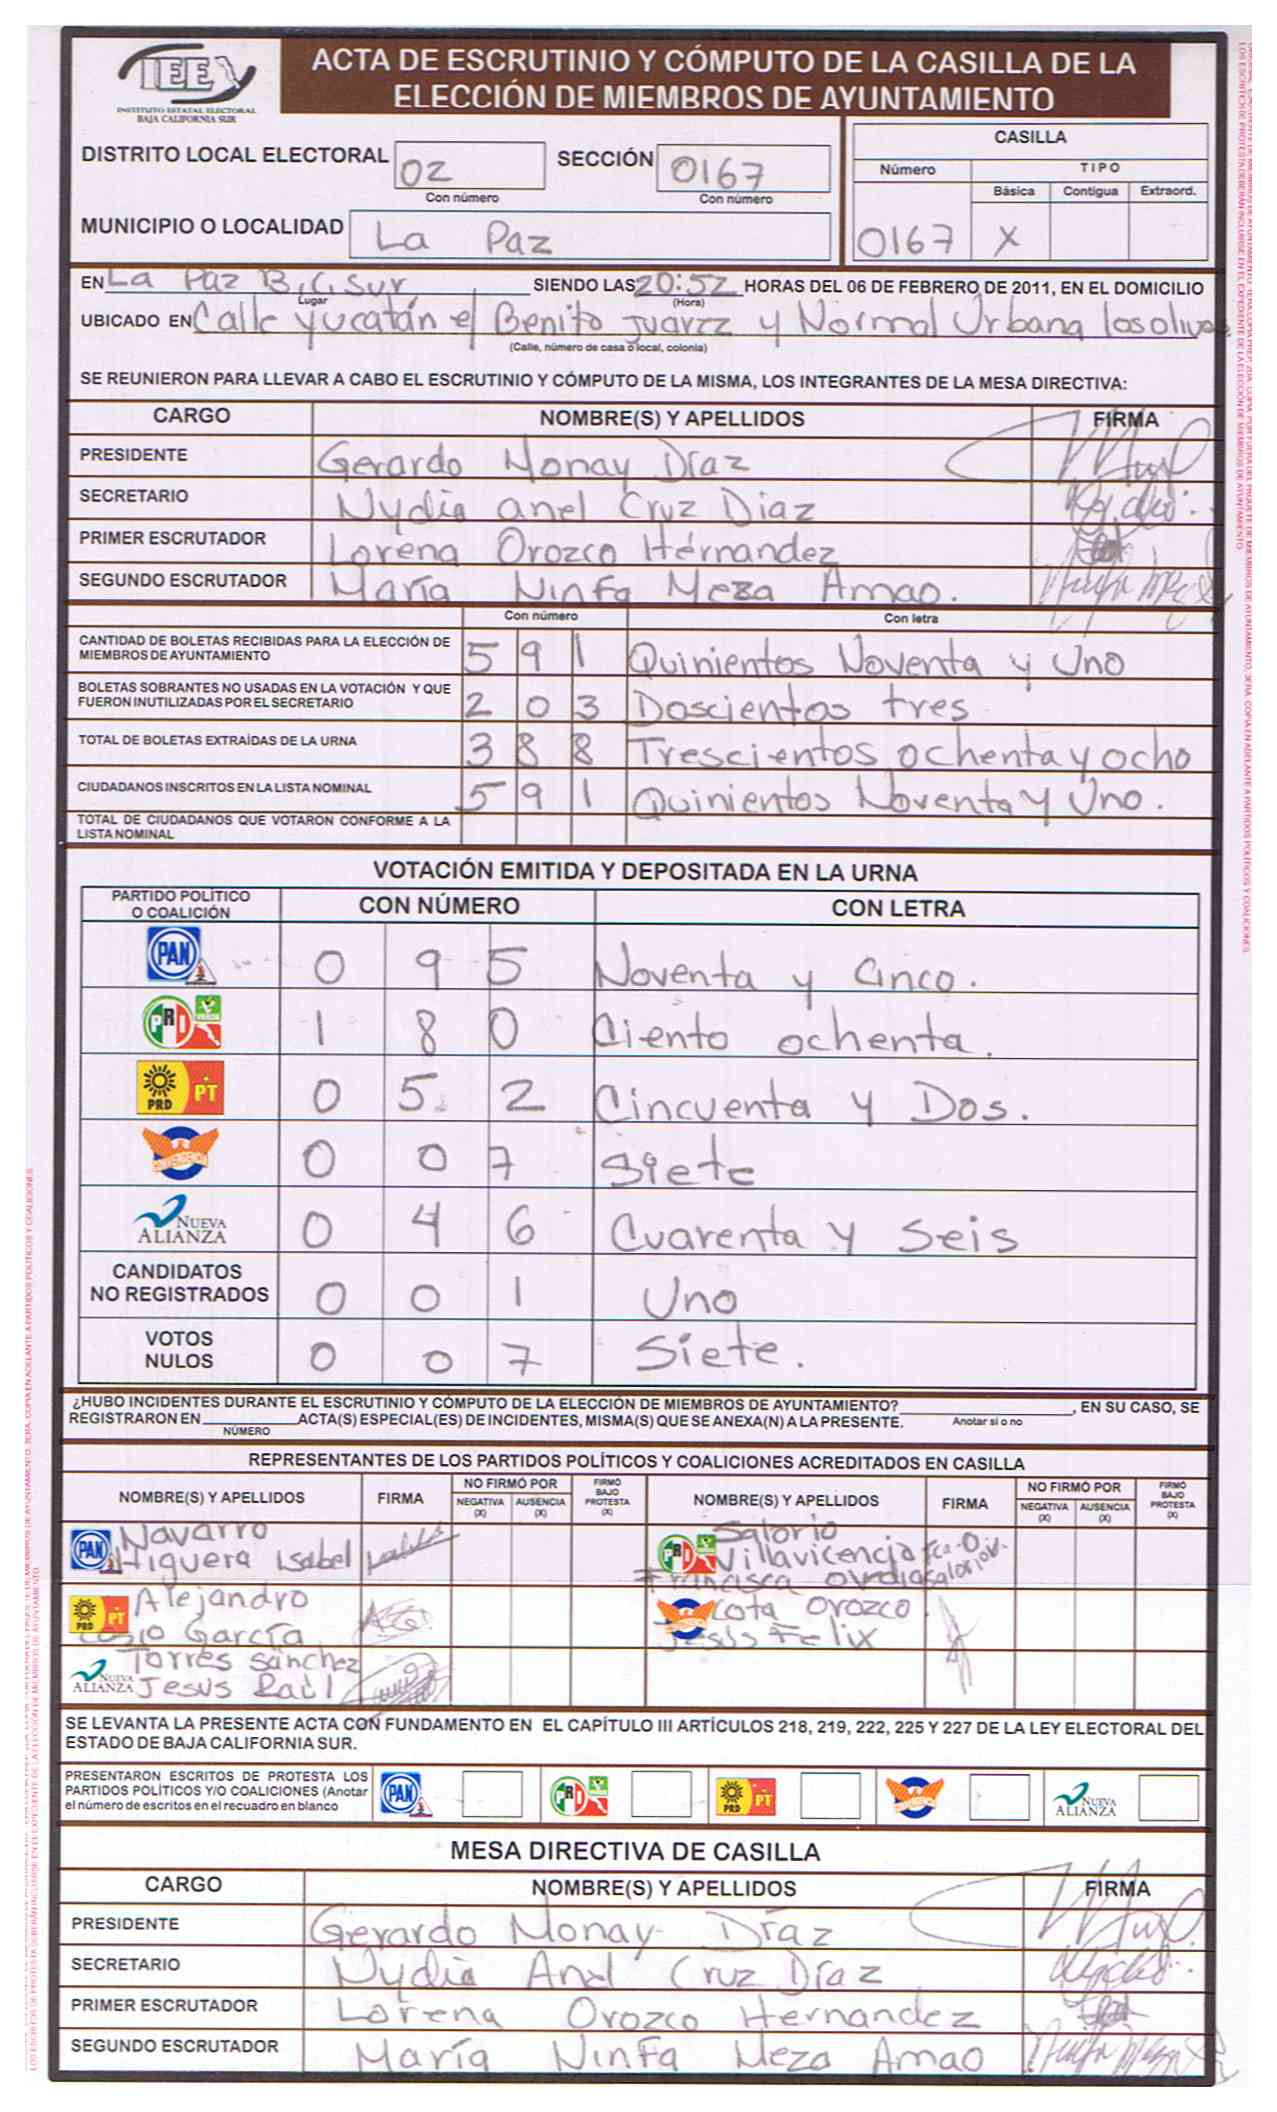 IEE
INSTITUTO ESTATAL ELECTORAL
BAJA CALIFORNIA SUR
ACTA DE ESCRUTINIO Y CÓMPUTO DE LA CASILLA DE LA
ELECCIÓN DE MIEMBROS DE AYUNTAMIENTO
DISTRITO LOCAL ELECTORAL 02 SECCIÓN 0167
Con número Con número
MUNICIPIO O LOCALIDAD La Paz
CASILLA
Número TIPO
Básica Contigua Extraord.
0167 X
EN La Paz B.C.Sur, SIENDO LAS 20:52 HORAS DEL 06 DE FEBRERO DE 2011, EN EL DOMICILIO
Lugar (Hora)
UBICADO EN Calle Yucatán e/ Benito Juarez y Normal Urbana los olivos
(Calle, número de casa o local, colonia)
SE REUNIERON PARA LLEVAR A CABO EL ESCRUTINIO Y CÓMPUTO DE LA MISMA, LOS INTEGRANTES DE LA MESA DIRECTIVA:
CARGO NOMBRE(S) Y APELLIDOS FIRMA
PRESIDENTE Gerardo Monay Díaz
SECRETARIO Nydia anel Cruz Diaz
PRIMER ESCRUTADOR Lorena Orozco Hérnandez
SEGUNDO ESCRUTADOR María Ninfa Meza Amao.
Con número Con letra
CANTIDAD DE BOLETAS RECIBIDAS PARA LA ELECCIÓN DE
MIEMBROS DE AYUNTAMIENTO 5 9 1 Quinientos Noventa y Uno
BOLETAS SOBRANTES NO USADAS EN LA VOTACIÓN Y QUE
FUERON INUTILIZADAS POR EL SECRETARIO 2 0 3 Doscientos tres
TOTAL DE BOLETAS EXTRAÍDAS DE LA URNA 3 8 8 Trescientos ochenta y ocho
CIUDADANOS INSCRITOS EN LA LISTA NOMINAL 5 9 1 Quinientos Noventa y Uno.
TOTAL DE CIUDADANOS QUE VOTARON CONFORME A LA
LISTA NOMINAL
VOTACIÓN EMITIDA Y DEPOSITADA EN LA URNA
PARTIDO POLÍTICO
O COALICIÓN CON NÚMERO CON LETRA
PAN 0 9 5 Noventa y Cinco.
PRI VERDE 1 8 0 Ciento ochenta.
PRD PT 0 5 2 Cincuenta y Dos.
CONVERGENCIA 0 0 7 Siete
NUEVA
ALIANZA 0 4 6 Cuarenta y Seis
CANDIDATOS
NO REGISTRADOS 0 0 1 Uno
VOTOS
NULOS 0 0 7 Siete.
¿HUBO INCIDENTES DURANTE EL ESCRUTINIO Y CÓMPUTO DE LA ELECCIÓN DE MIEMBROS DE AYUNTAMIENTO? , EN SU CASO, SE
REGISTRARON EN ACTA(S) ESPECIAL(ES) DE INCIDENTES, MISMA(S) QUE SE ANEXA(N) A LA PRESENTE. Anotar si o no
NÚMERO
REPRESENTANTES DE LOS PARTIDOS POLÍTICOS Y COALICIONES ACREDITADOS EN CASILLA
NOMBRE(S) Y APELLIDOS FIRMA NO FIRMÓ POR NEGATIVA (X) AUSENCIA (X) FIRMÓ BAJO PROTESTA (X) NOMBRE(S) Y APELLIDOS FIRMA NO FIRMÓ POR NEGATIVA (X) AUSENCIA (X) FIRMÓ BAJO PROTESTA (X)
PAN Navarro
Higuera Isabel
PRI Salorio
Villavicencia
Francisca Ovedia
PRD PT Alejandro
Cosio García
Cota Orozco
Jesús Felix
NUEVA ALIANZA Torres Sánchez
Jesus Raúl
SE LEVANTA LA PRESENTE ACTA CON FUNDAMENTO EN EL CAPÍTULO III ARTÍCULOS 218, 219, 222, 225 Y 227 DE LA LEY ELECTORAL DEL
ESTADO DE BAJA CALIFORNIA SUR.
PRESENTARON ESCRITOS DE PROTESTA LOS
PARTIDOS POLÍTICOS Y/O COALICIONES (Anotar
el número de escritos en el recuadro en blanco
PAN PRI PRD PT NUEVA ALIANZA
MESA DIRECTIVA DE CASILLA
CARGO NOMBRE(S) Y APELLIDOS FIRMA
PRESIDENTE Gerardo Monay Díaz
SECRETARIO Nydia Anel Cruz Díaz
PRIMER ESCRUTADOR Lorena Orozco Hernandez
SEGUNDO ESCRUTADOR María Ninfa Meza Amao